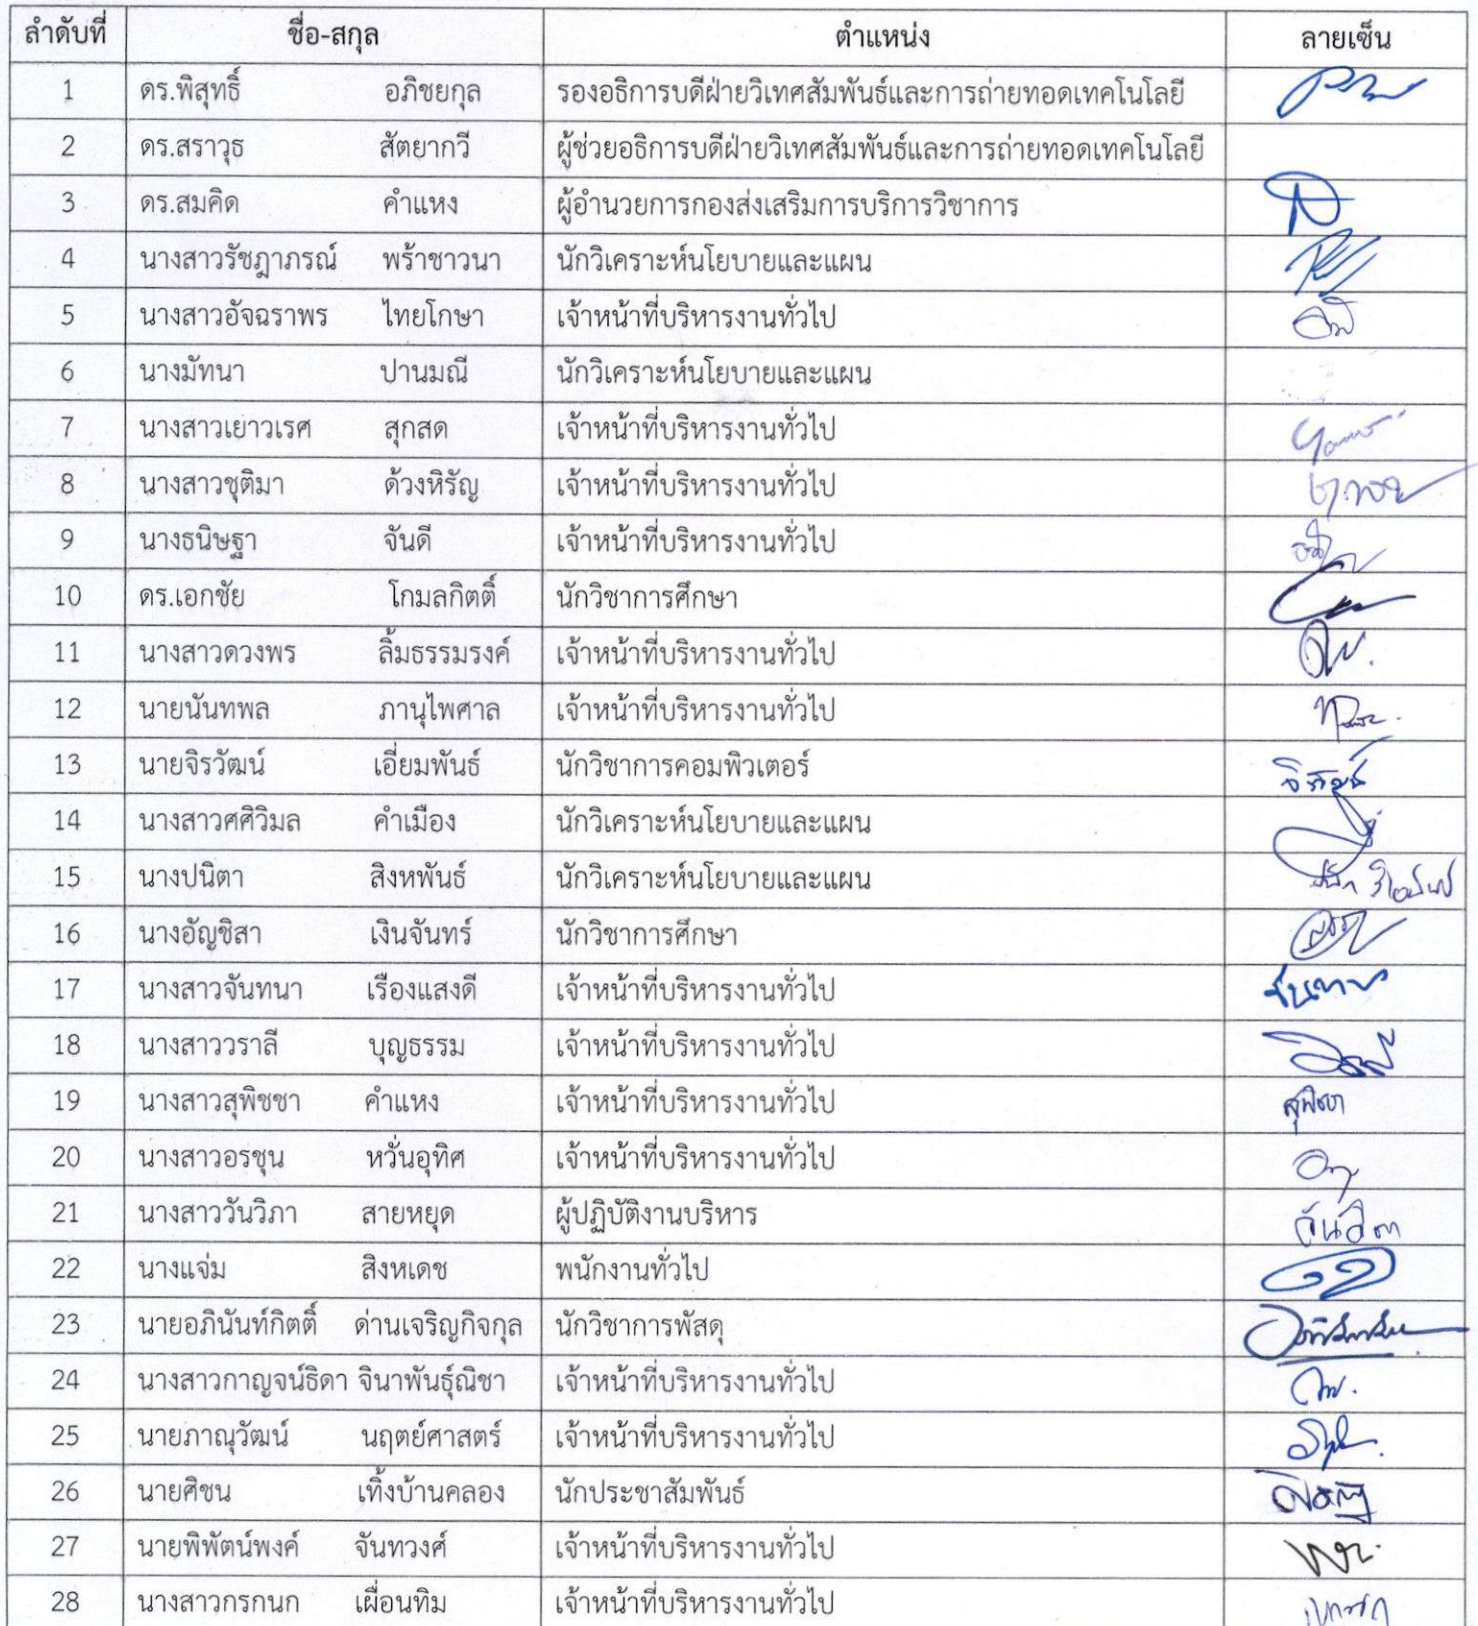 ลำดับที่ ชื่อ-สกุล ตำแหน่ง ลายเซ็น
1 ดร.พิสุทธิ์ อภิชยกุล รองอธิการบดีฝ่ายวิเทศสัมพันธ์และการถ่ายทอดเทคโนโลยี
2 ดร.สราวุธ สัตยากวี ผู้ช่วยอธิการบดีฝ่ายวิเทศสัมพันธ์และการถ่ายทอดเทคโนโลยี
3 ดร.สมคิด คำแหง ผู้อำนวยการกองส่งเสริมการบริการวิชาการ
4 นางสาวรัชฎาภรณ์ พร้าชาวนา นักวิเคราะห์นโยบายและแผน
5 นางสาวอัจฉราพร ไทยโกษา เจ้าหน้าที่บริหารงานทั่วไป
6 นางมัทนา ปานมณี นักวิเคราะห์นโยบายและแผน
7 นางสาวเยาวเรศ สุกสด เจ้าหน้าที่บริหารงานทั่วไป
8 นางสาวชุติมา ด้วงหิรัญ เจ้าหน้าที่บริหารงานทั่วไป
9 นางธนิษฐา จันดี เจ้าหน้าที่บริหารงานทั่วไป
10 ดร.เอกชัย โกมลกิตติ์ นักวิชาการศึกษา
11 นางสาวดวงพร ลิ้มธรรมรงค์ เจ้าหน้าที่บริหารงานทั่วไป
12 นายนันทพล ภานุไพศาล เจ้าหน้าที่บริหารงานทั่วไป
13 นายจิรวัฒน์ เอี่ยมพันธ์ นักวิชาการคอมพิวเตอร์
14 นางสาวศศิวิมล คำเมือง นักวิเคราะห์นโยบายและแผน
15 นางปนิตา สิงหพันธ์ นักวิเคราะห์นโยบายและแผน
16 นางอัญชิสา เงินจันทร์ นักวิชาการศึกษา
17 นางสาวจันทนา เรืองแสงดี เจ้าหน้าที่บริหารงานทั่วไป
18 นางสาววราลี บุญธรรม เจ้าหน้าที่บริหารงานทั่วไป
19 นางสาวสุพิชชา คำแหง เจ้าหน้าที่บริหารงานทั่วไป
20 นางสาวอรชุน หวั่นอุทิศ เจ้าหน้าที่บริหารงานทั่วไป
21 นางสาววันวิภา สายหยุด ผู้ปฏิบัติงานบริหาร
22 นางแจ่ม สิงหเดช พนักงานทั่วไป
23 นายอภินันท์กิตติ์ ด่านเจริญกิจกุล นักวิชาการพัสดุ
24 นางสาวกาญจน์ธิดา จินาพันธุ์ณิชา เจ้าหน้าที่บริหารงานทั่วไป
25 นายภาณุวัฒน์ นฤตย์ศาสตร์ เจ้าหน้าที่บริหารงานทั่วไป
26 นายศิชน เทิ้งบ้านคลอง นักประชาสัมพันธ์
27 นายพิพัตน์พงค์ จันทวงศ์ เจ้าหน้าที่บริหารงานทั่วไป
28 นางสาวกรกนก เผื่อนทิม เจ้าหน้าที่บริหารงานทั่วไป